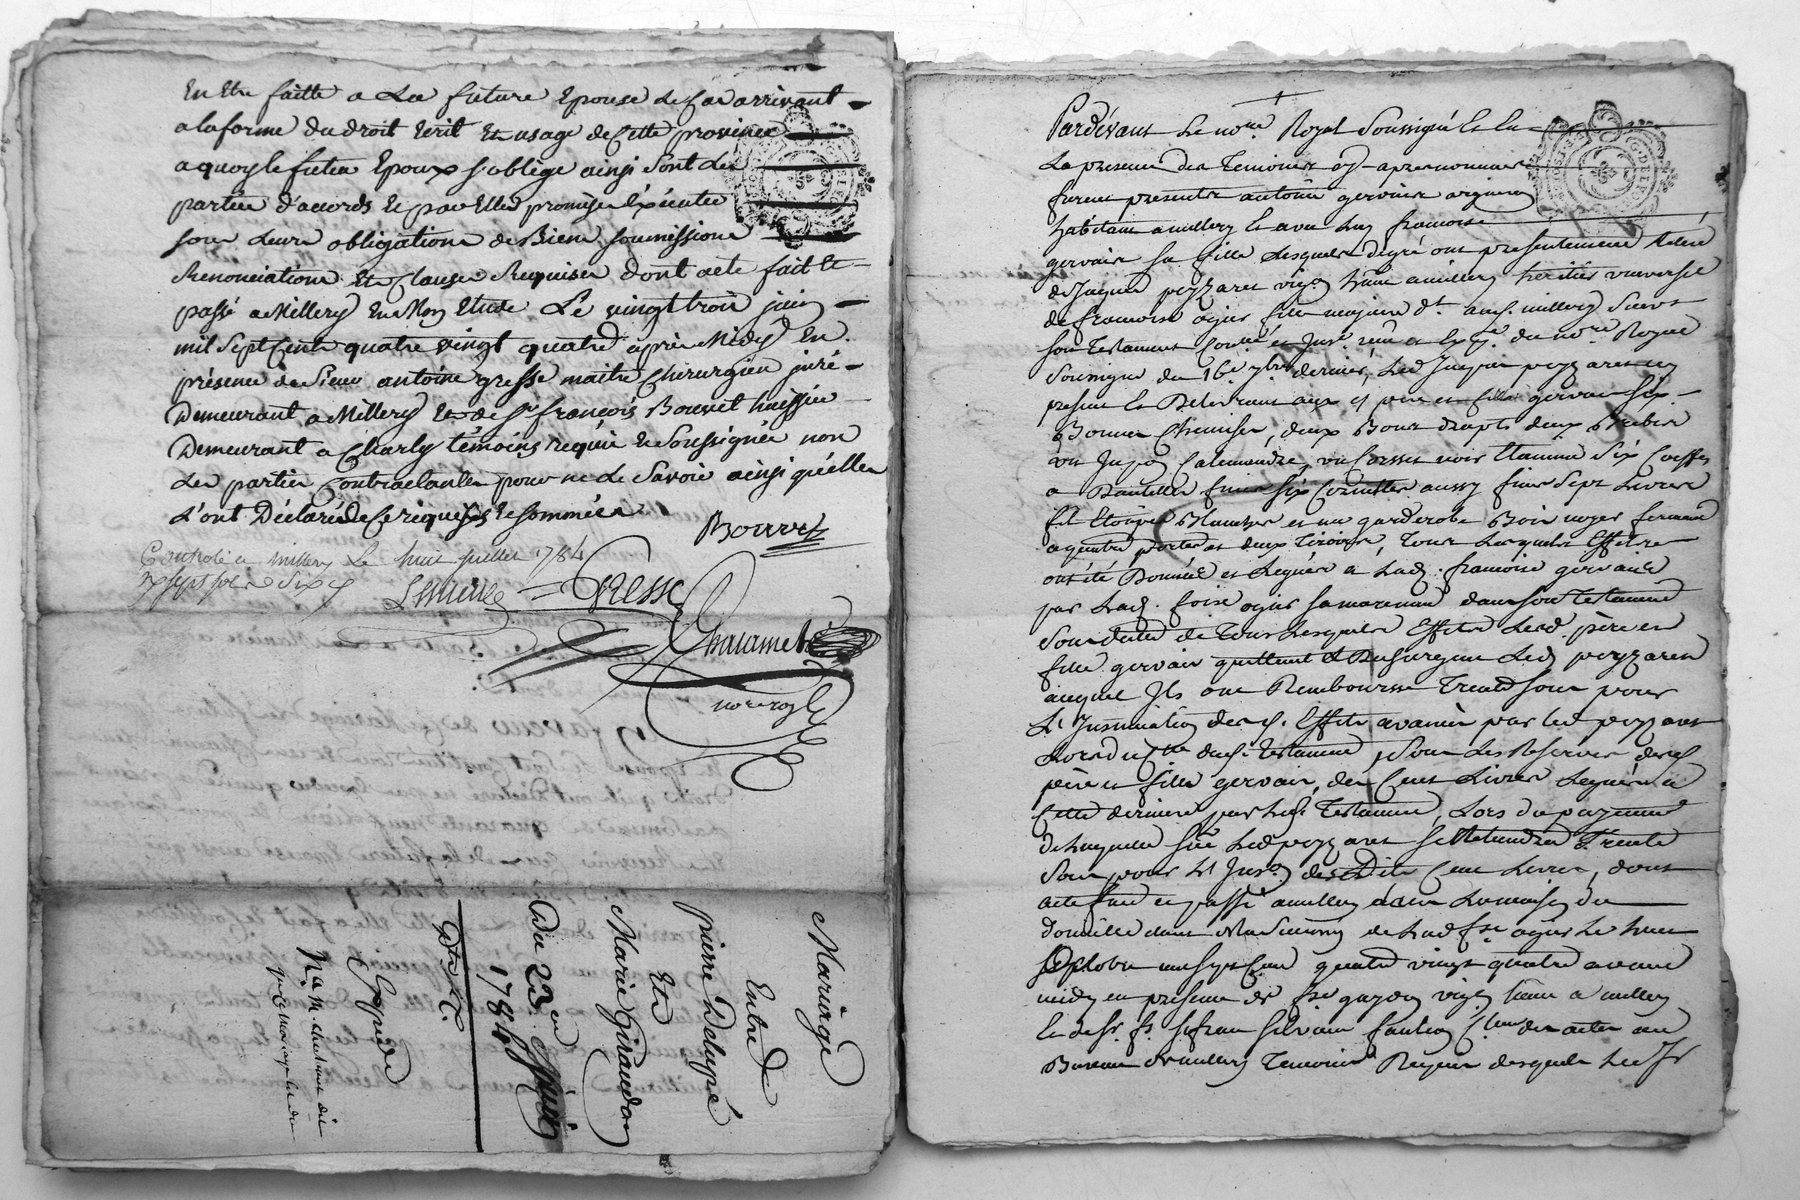 En Etre faitte a La future Epouse de Cas arrivant
a la forme du droit Ecrit Et usage de Cette province
a quoy le futur Epoux s'oblige ainsi sont Les
parties d'acords Et par Elles promis Executer
sous Leurs obligations de Biens soumissions
Renonciations Et Clauses Requises dont acte fait Et
passé a Millery En Mon Etude Le vingt trois juin
mil Sept Cents quatre vingt quatre après Midy En
présence de Sieur antoine gresse maitre Chirurgien juré
Demeurant a Millery Et de Sr françois Bouvet huissier
Demeurant a Charly témoins requis Et Soussignés non
Les parties Contractantes pour ne Le Savoir ainsi qu'elles
L'ont Déclaré de Ce requises Et sommées
Bouvet
Controlé a millery Le huit juillet 1784
Gresse
Chazamet
not. roy.
Mariage
Entre
pierre Delupé
Et
Marie Giraudon
Du 23. en juin
1784
Dt. C.
Expédié
Pardevant Le nore. Royal Soussigné Et En
La presence des Temoins cy-apres nommés
furent presents antoine gervais vigneron
habitant a millery Et avec Luy francoise
gervais sa fille Lesquels degré ont presentement Retiré
de Jaques peyzaret vign. habt. a millery heritier universel
de francoise ogier fille majeure dt. aud. millery Suivt
son Testament
Soussigné du 16e. 9bre dernier, Led Jaques peyzaret icy
present Et Delivrant aux d. pere et fille gervais six
Bonnes Chemises, deux Bons draps deux
un Jupon Calemandre, un Corset noir Etamine Six Coeffes
a Dantelles fines six Cornettes aussy fines Sept Livres
fil Etoupes Blanches et un garderobe Bois noyer fermant
a quatre portes et deux Tiroirs, Tous Lesquels Effets
ont été Donnés et Legués a Lad. francoise gervais
par Lad. foise ogier sa marenne dans son Testament
Sous datte de Tous Lesquels Effets Lesd. père et
fille gervais quittent Et Déchargent Led. peyzaret
auquel Ils ont Remboursé Trente sous pour
L'Insinuation des d. Effets avancés par led peyzaret
Lors du Cle dud. Testament, Sous Les Reserves desd.
père et fille gervais, des Cent Livres Legués a
Cette derniere par Led. Testament, Lors du payement
de Laquelle Led peyzaret se Retiendra Trente
Sous pour L'Inson desdites Cent Livres, dont
acte fait et passé a millery dans La maison du
domicile dans de Lad fse ogier Le huit
8bre mil sept Cent quatre vingt quatre avant
midy en présence de vign. habt. a millery
Et de Sr. Cteur des actes au
Bureau de millery Temoins Requis desquels Led Sr